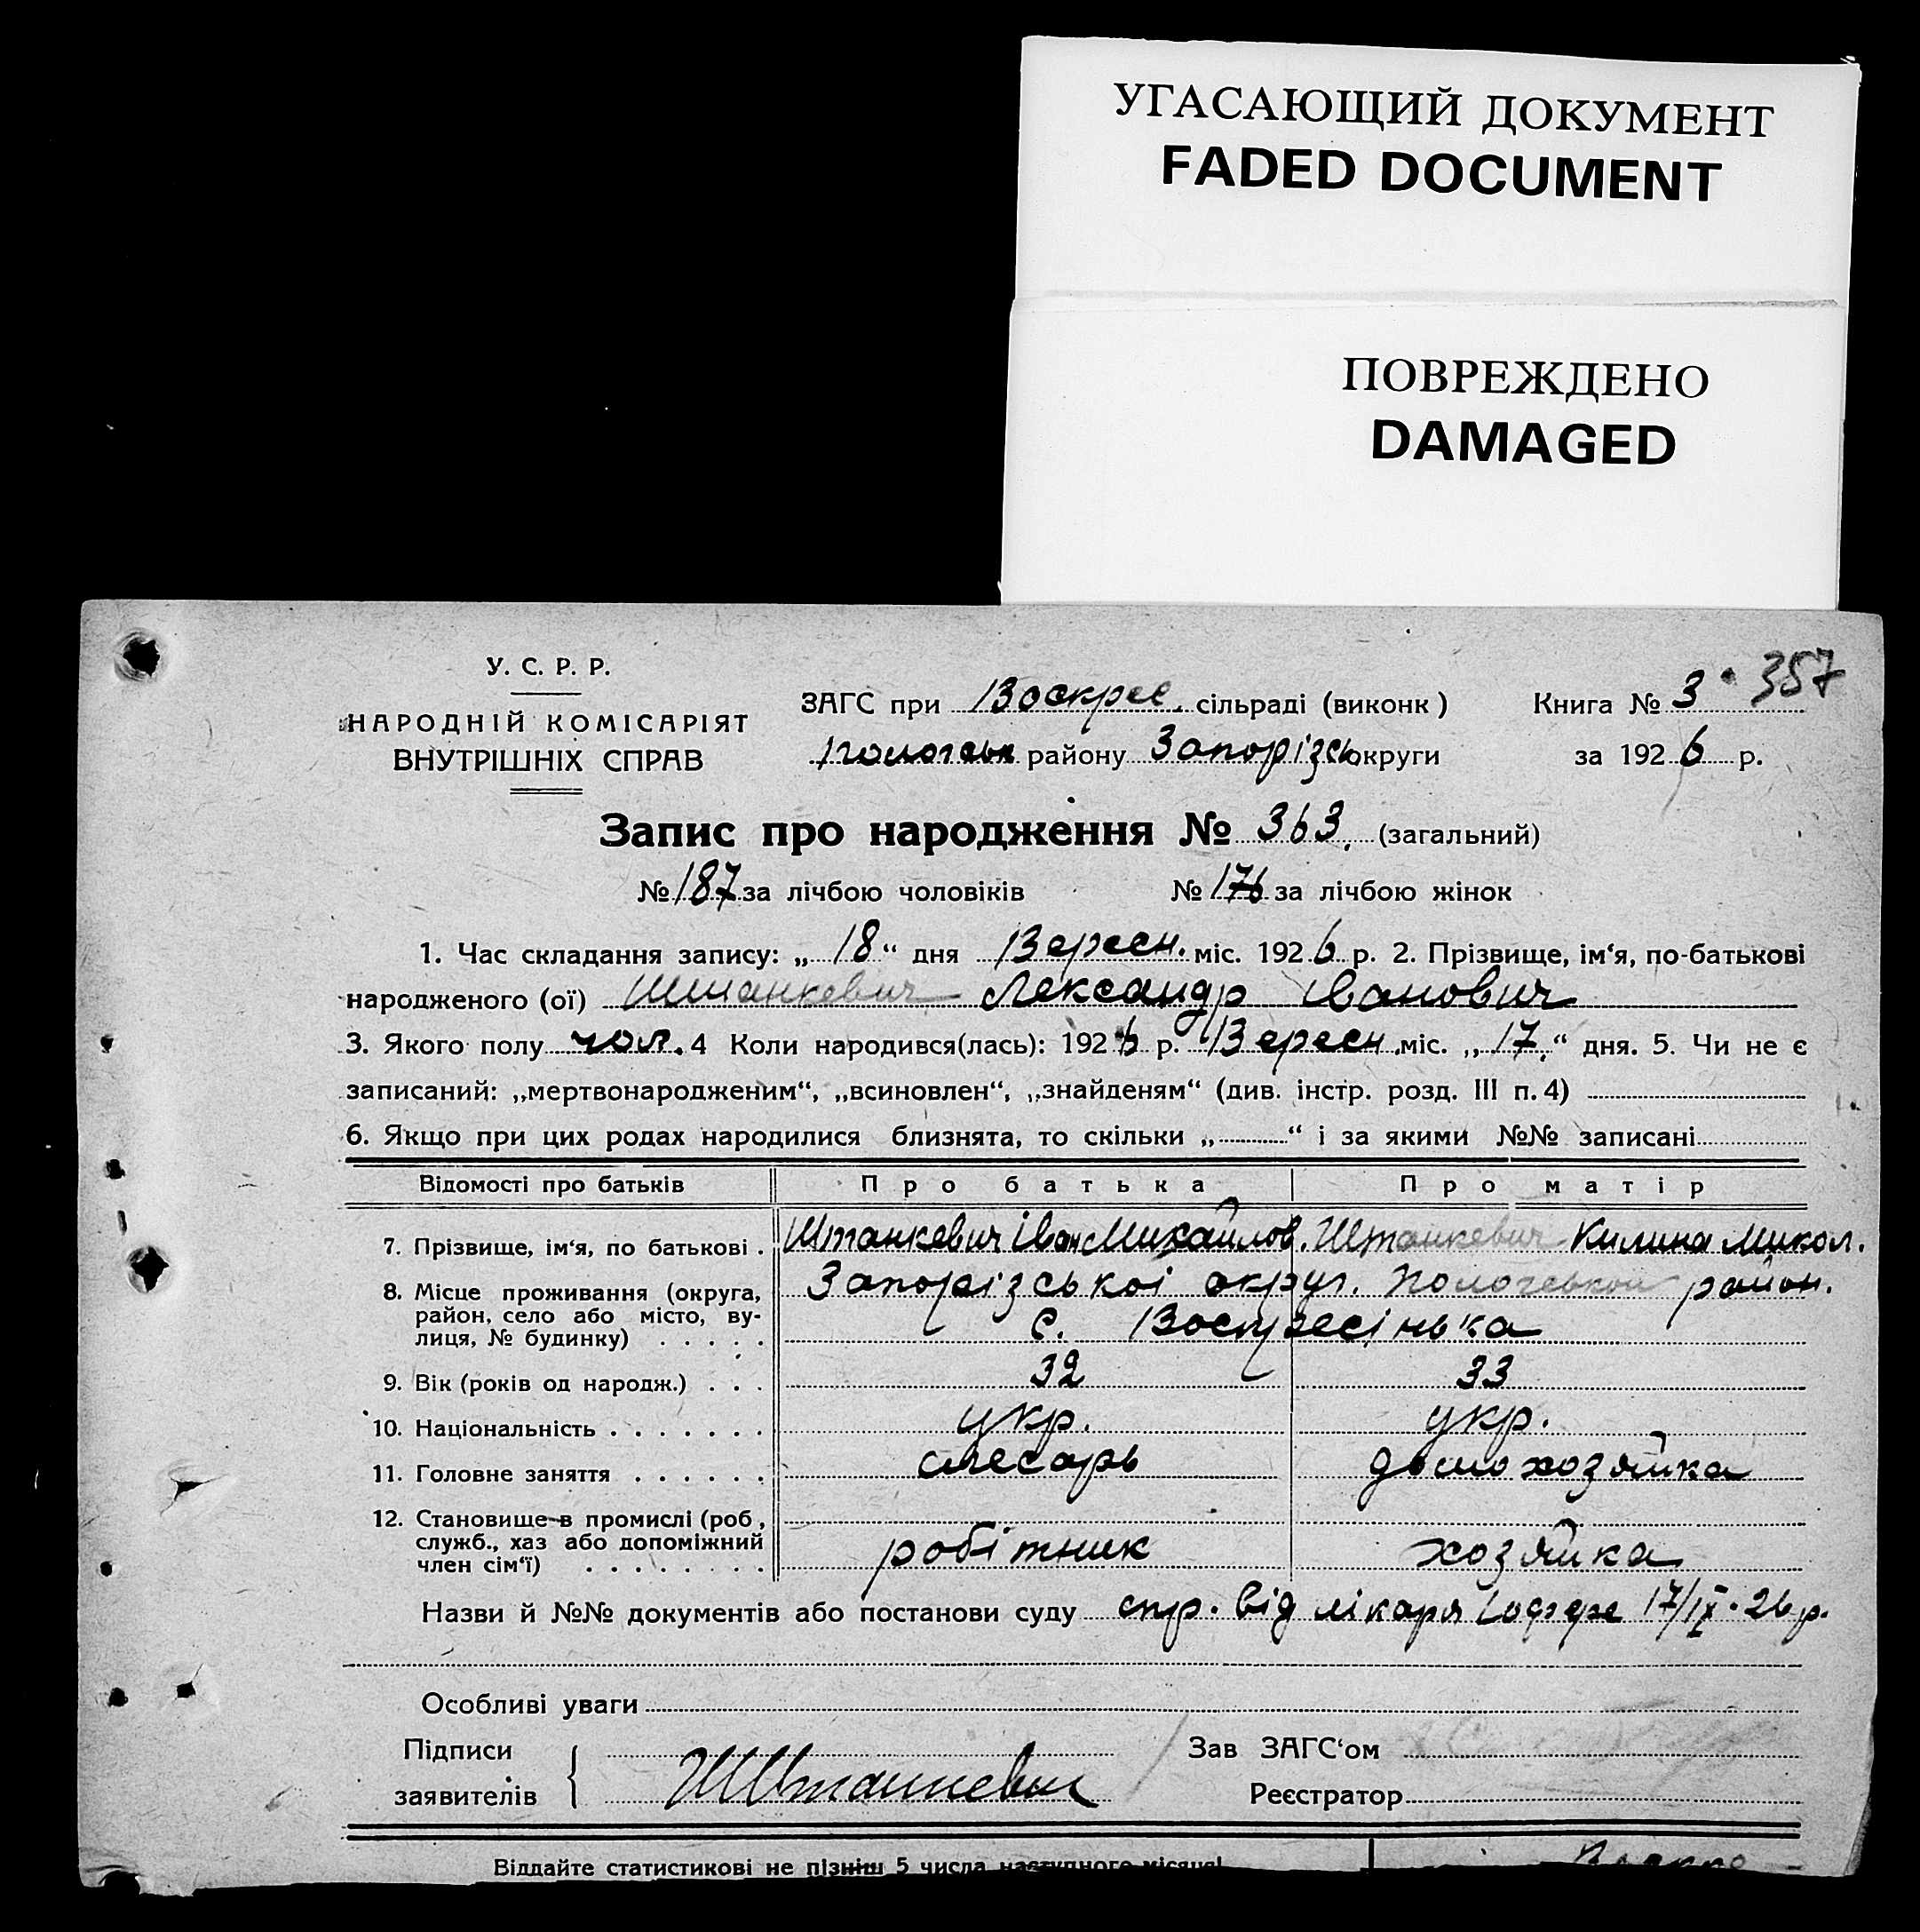 УГАСАЮЩИЙ ДОКУМЕНТ
FADED DOCUMENT
ПОВРЕЖДЕНО
DAMAGED
357
У. С. Р. Р.
НАРОДНІЙ КОМІСАРІЯТ
ВНУТРІШНІХ СПРАВ
ЗАГС при Воскрес. сільраді (виконк)
Пологськ району Запорізськ округи
Книга № 3
за 1926 р.
Запис про народження № 363. (загальний)
№ 187 за лічбою чоловіків № 176 за лічбою жінок
1. Час складання запису: „ 18 “ дня Вересн. міс. 1926 р. 2. Прізвище, ім‘я, по-батькові
народженого (ої) Штанкевич Лександр Іванович
3. Якого полу чол. 4 Коли народився(лась): 1926 р. Вересн. міс. „ 17. “ дня. 5. Чи не є
записаний: „мертвонародженим“, „всиновлен“, „знайденям“ (див. інстр. розд. III п. 4)
6. Якщо при цих родах народилися близнята, то скільки „ “ і за якими №№ записані
Відомості про батьків Про батька Про матір
7. Прізвище, ім‘я, по батькові . Штанкевич Іван Михайлов. Штанкевич Килина Микол.
8. Місце проживання (округа, район, село або місто, вулиця, № будинку) . . . . . Запорізської округ. Пологської район.
с. Воскресінька
9. Вік (років од народж.) . . . 32 33
10. Національність . . . . . . . укр. укр.
11. Головне заняття . . . . . . слесарь домохозяйка
12. Становище в промислі (роб , служб., хаз або допоміжний член сім‘ї) . . . . . . . . робітник хозяйка
Назви й №№ документів або постанови суду спр. від лікаря 17/IX. 26 р.
Особливі уваги
Підписи
заявителів
Штанкевич
Зав ЗАГС‘ом
Реєстратор
Віддайте статистикові не пізніш 5 числа наступного місяця!